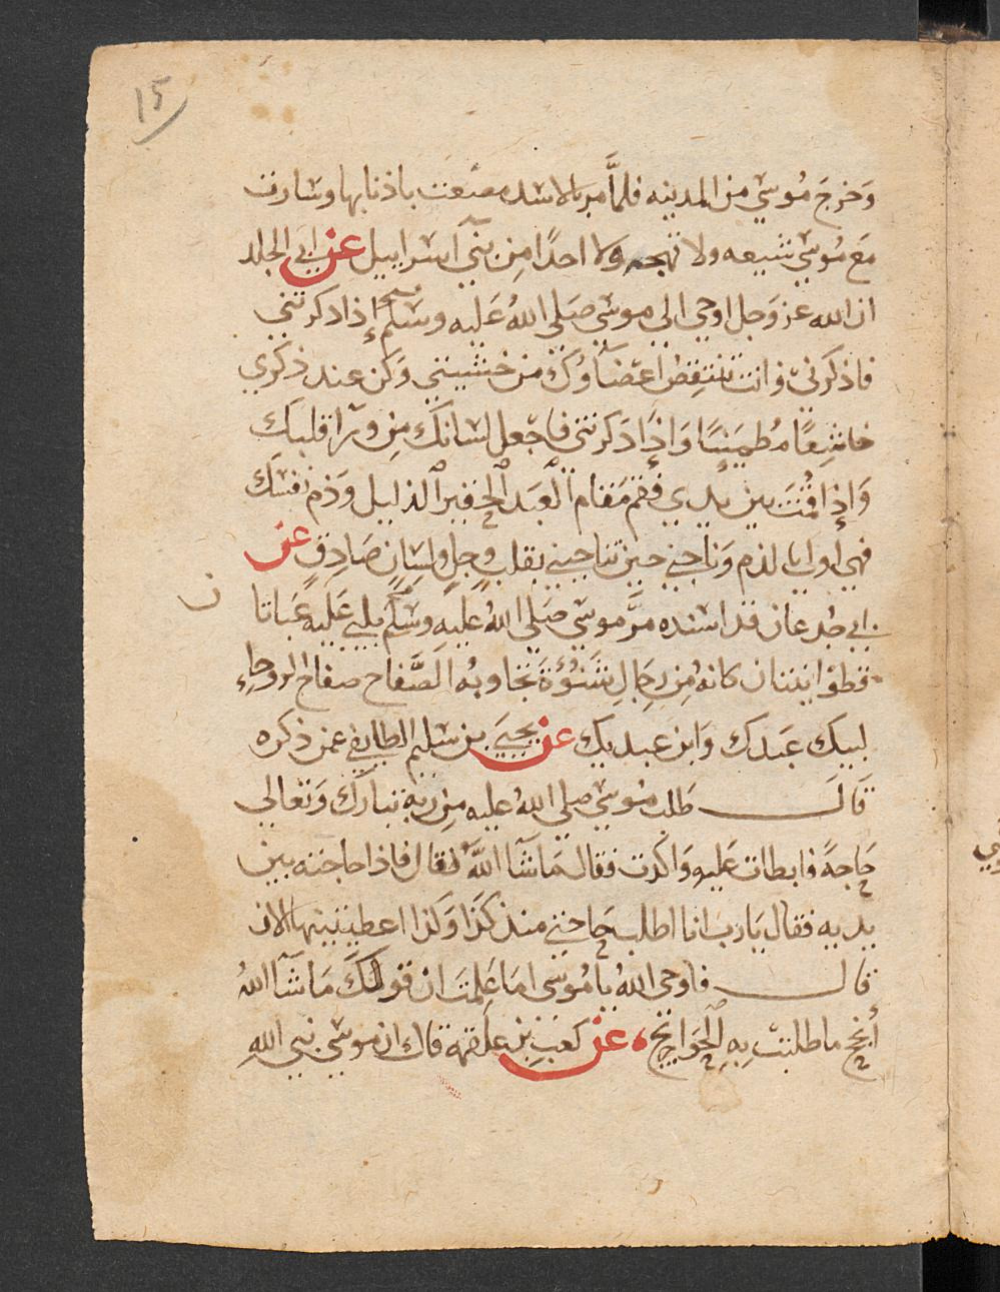 ١٥
وَخرجَ مُوسَي من المدينه فلمَّا مر بالاسد مصَعت باذنابها وسَارت
مَع مُوسَي تشيعه ولا تهيجه ولا احدًا مِن بني اسراييل عن ابي الجلد
ان الله عز وَجل اوحي الي موسَي صَلي اللهُ عَليه وسَلم إذا ذكرتني
فاذكرني وانت تنتفِض اعضآوك من خشيتي وَكن عند ذكري
خاشِعًا مُطميَنًا وَاذِا ذكرتني فاجعل لسَانك مِن ورآ قلبك
وَاذِا قمْتَ بين يدي فقم مَقام العَبد الحقير الذليل وَذم نفسَك
فهي اولي بالذم وَناجني حين تناجيني بقلب وجلٍ ولسَانٍ صَادِقٍ عن
ابن جُدعان قد اسنده مرَّ موسَي صَلي اللهُ عليهِ وسَلم يلبي عَليه عَباتا
قطوانيتان كانه مِن رجَالِ شَنُؤةَ تجاوبه الصَّفاح صفاح الروحاء
لبيك عَبدك وَابن عبديك عن يحيَي بن سَليم الطايفي عمن ذكره
قَالَ طَلب مُوسَي صلي اللهُ عليه مِن ربه تبارَك وَتعالي
حَاجةً فابطات عَليه وَاكدت فقال مَا شَآ اللهُ فقال فاذا حاجته بين
يديه فقال يَا رب انا اطلب حَاجتي منذ كذا وَكذا اعطيتنيها الان
قال فاوحى اللهُ يا مُوسَي امَا عَلِمتَ ان قولكَ مَا شَآ اللهُ
أنجح ما طلبت بهِ الحَوايج عن كعَبِ بن علقمه قال ان موسَي نبي الله